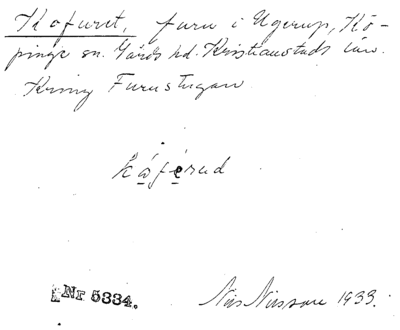 Kofuret, furu i Ugerup, Kö-
pinge sn. Gärds hd. Kristianstads län.
Kring Furustugan.
Nr 5334.
Nils Nilsson 1933.